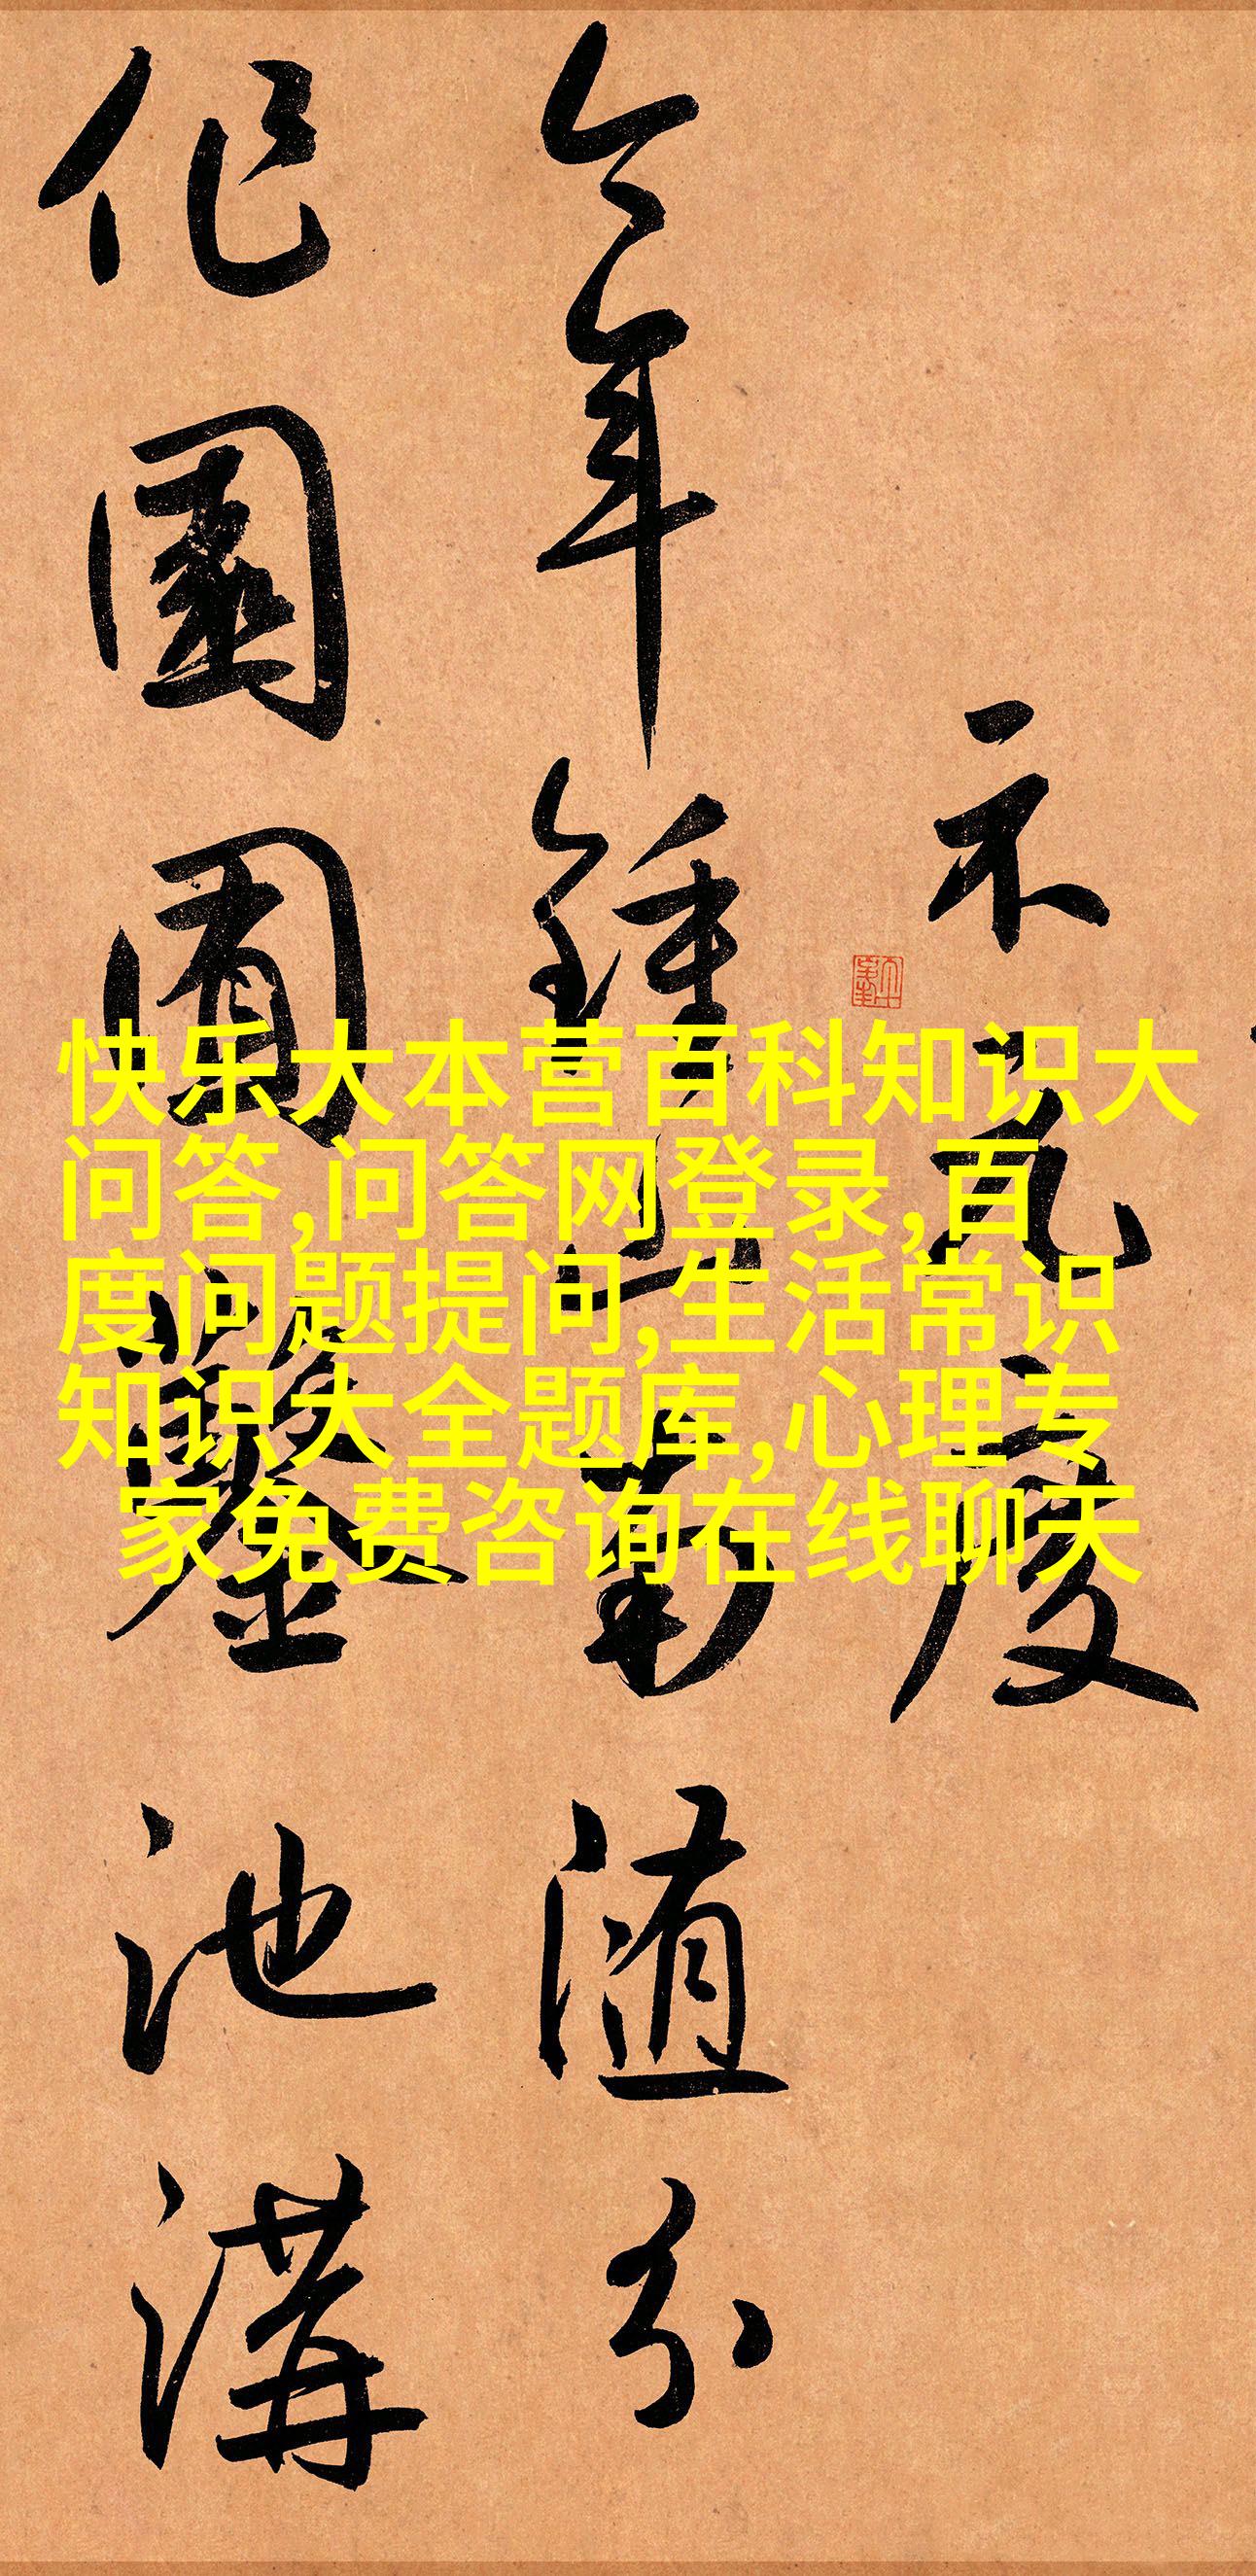 示元度
今年鍾山南随分
作園囿鑿池溝
快乐大本营百科知识大
问答,问答网登录,百
度问题提问,生活常识
知识大全题库,心理专
家免费咨询在线聊天